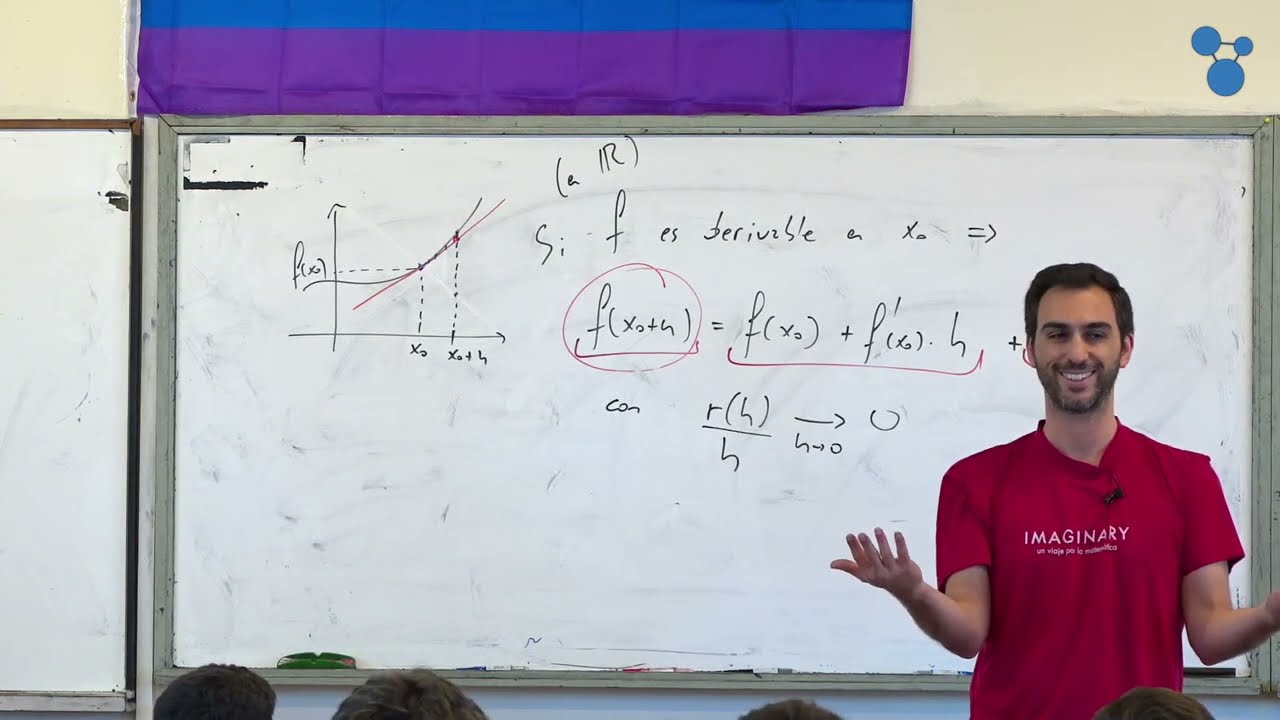 (en ℝ)
Si f es derivable en x₀ ⇒
f(x₀)
f(x₀+h) = f(x₀) + f'(x₀) · h +
x₀ x₀+h
con r(h)/h → 0
h→0
IMAGINARY
un viaje por la matemática